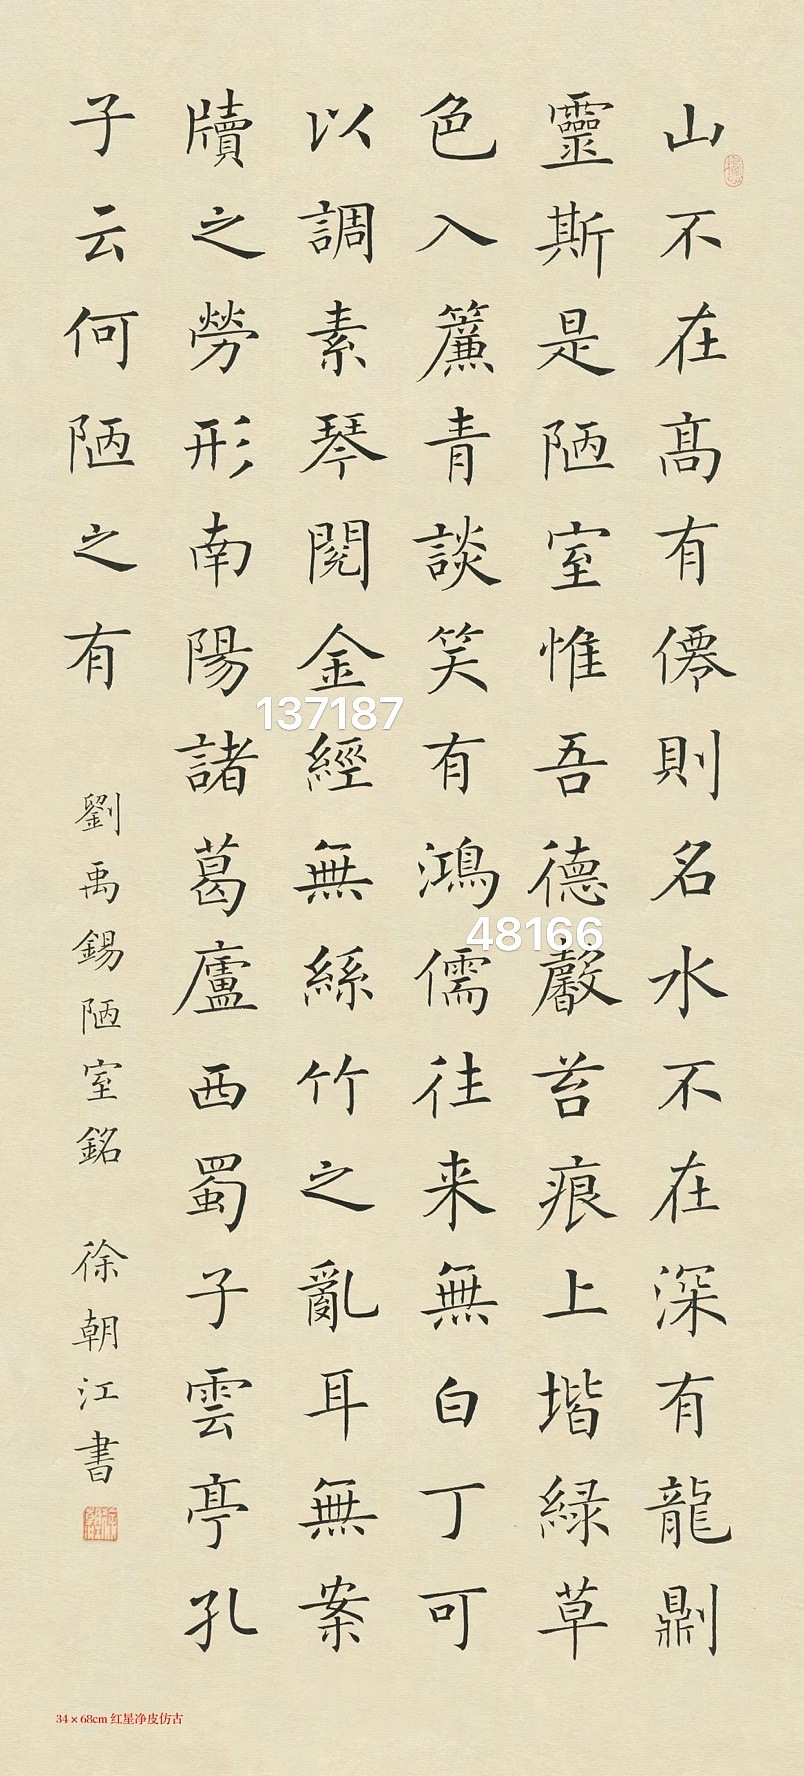 山不在髙有僊則名水不在深有龍鼎刂
靈斯是陋室惟吾德馨苔痕上堦緑草
色入簾青談笑有鴻儒往来無白丁可
以調素琴閱金經無絲竹之亂耳無案
牘之勞形南陽諸葛廬西蜀子雲亭孔
子云何陋之有
劉禹錫陋室銘 徐朝江書
137187
48166
34×68cm 红星净皮仿古